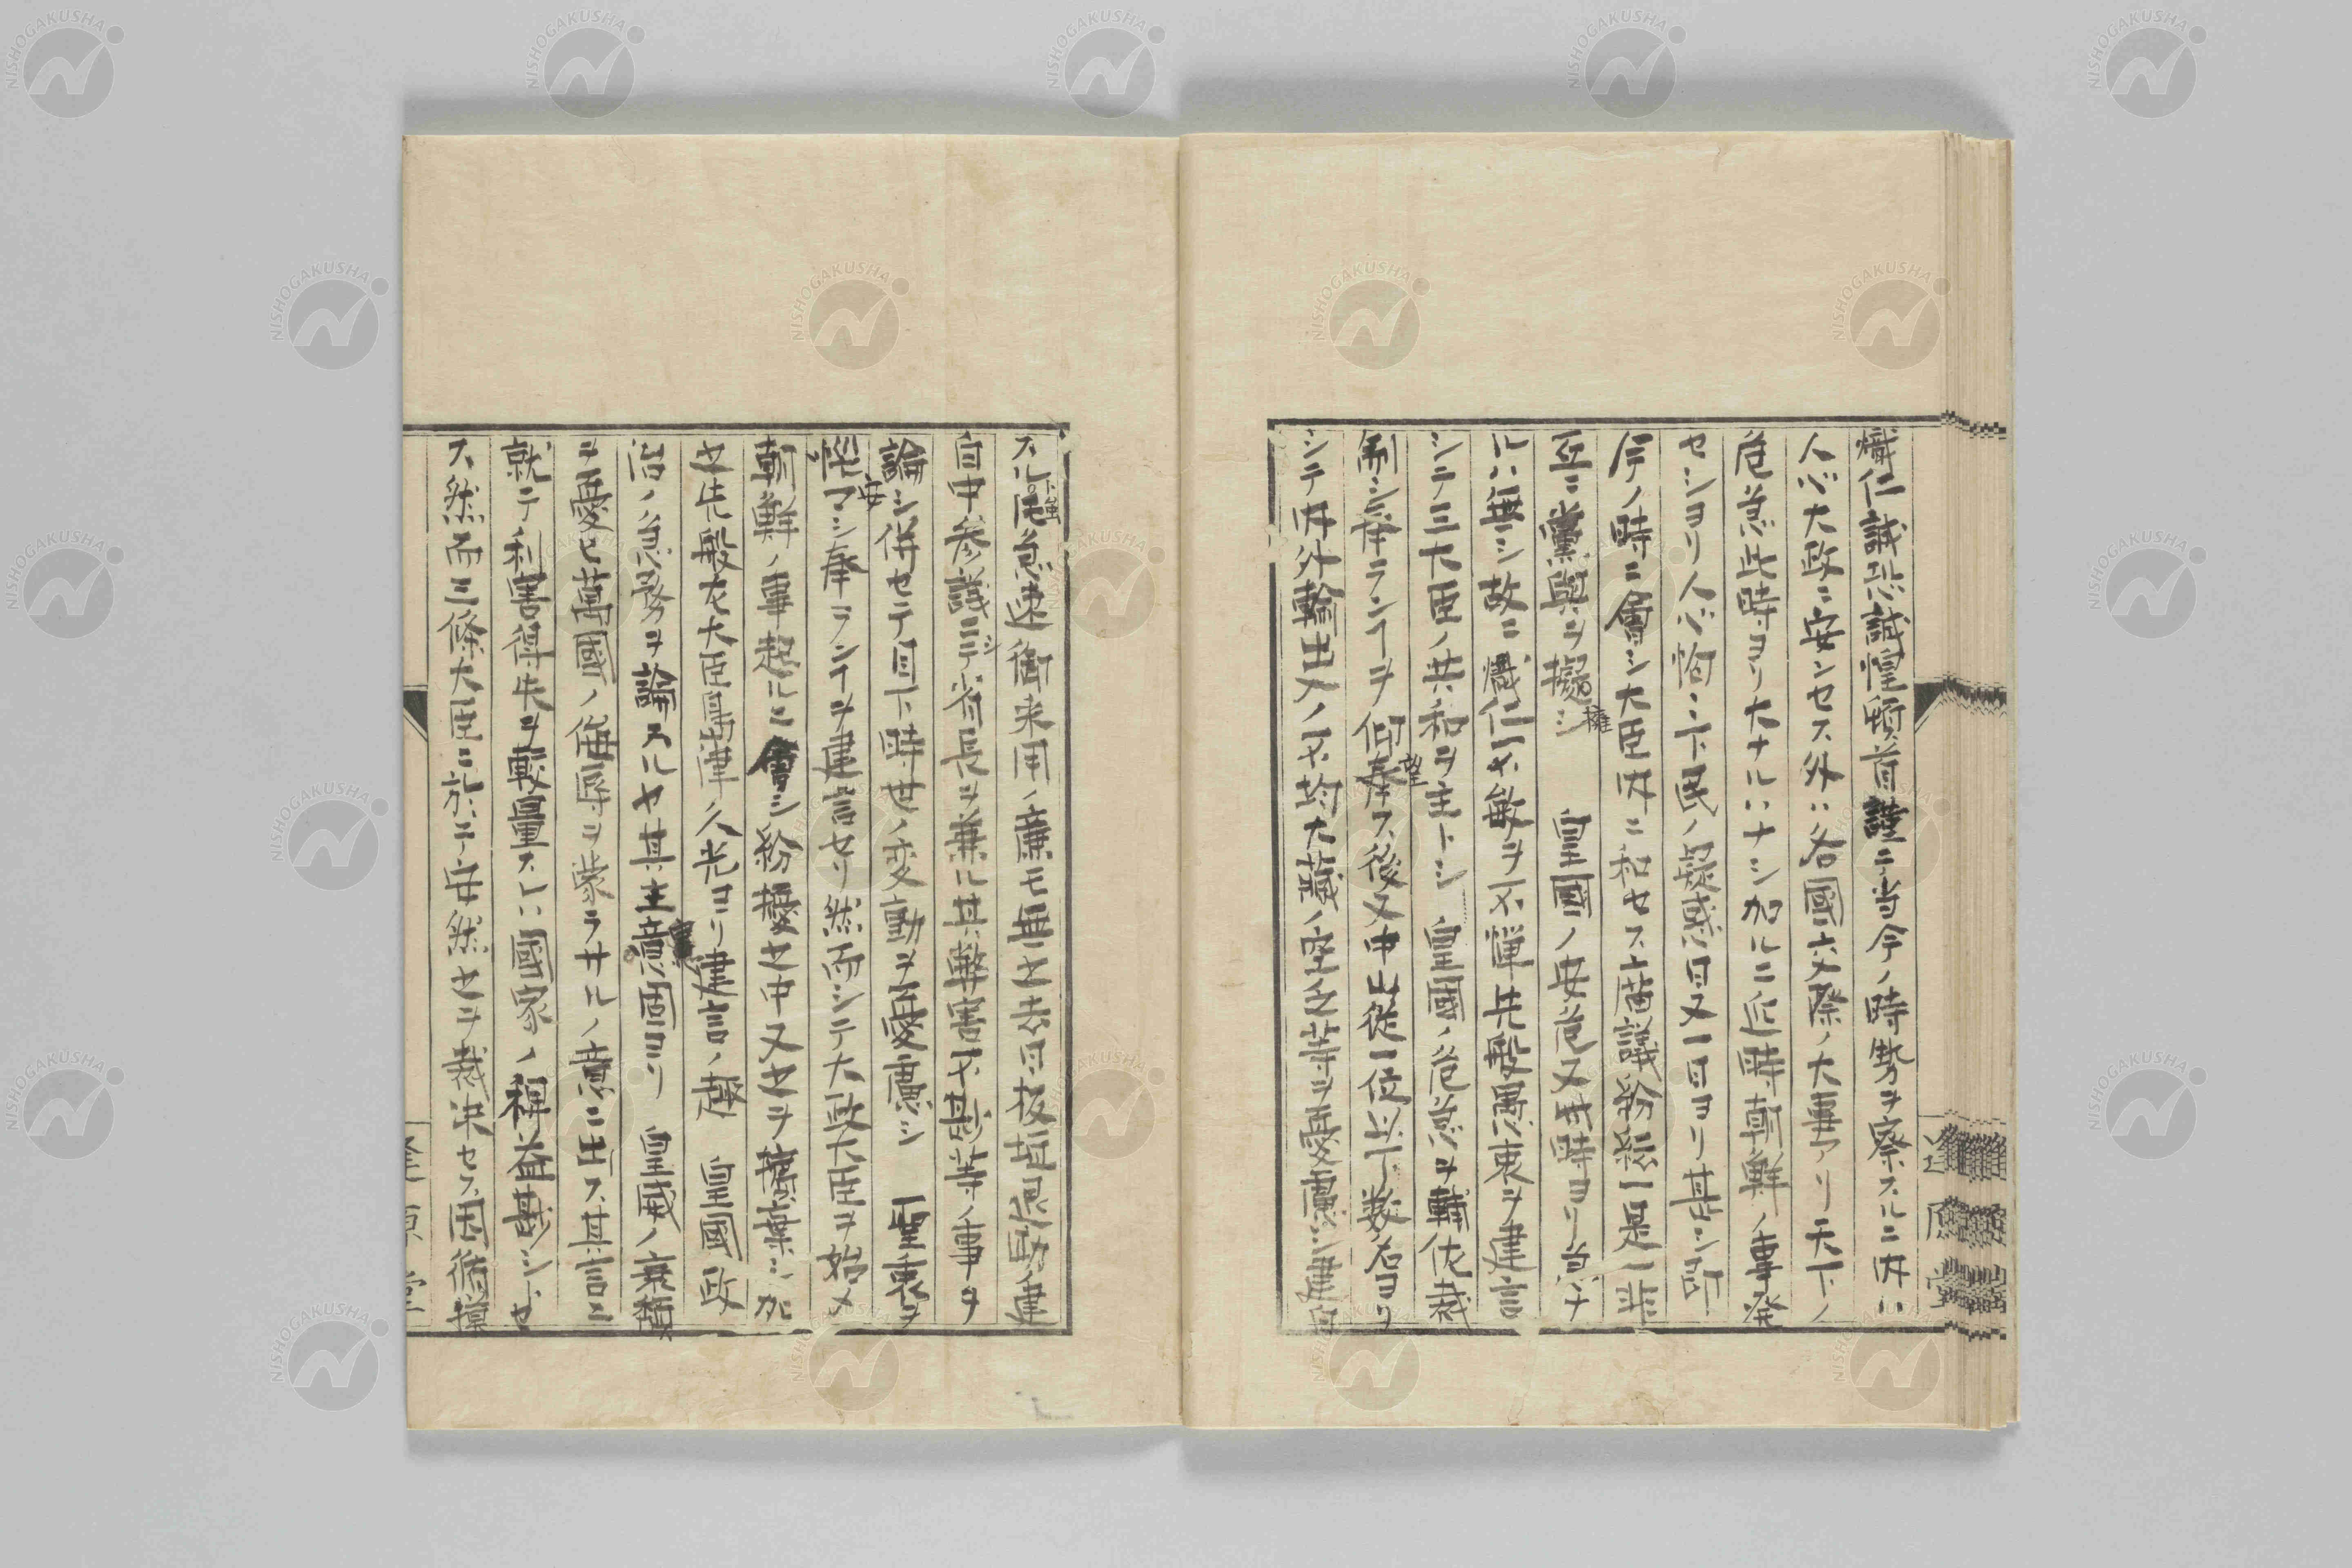 熾仁誠恐誠惶頓首謹テ当今ノ時勢ヲ察スルニ内ハ
人心大政ニ安ンセス外ハ各國交際ノ大事アリ天下ノ
危急此時ヨリ大ナルハナシ加ルニ近時朝鮮ノ事発
セシヨリ人心恟々下民ノ疑惑日又一日ヨリ甚シ
今ノ時ニ會シ大臣内ニ和セス上議紛紜一是一非
互ニ黨與ヲ擬シ 皇國ノ安危又此時ヨリ急ナ
擁
ルハ無シ故ニ熾仁不敏ヲ不憚共般愚衷ヲ建言
シテ三大臣ノ共和ヲ主トシ 皇國ノ危急ヲ輔佐裁
制シ奉ランヿヲ仰奉ス後又中山従一位以下数名ヨリ
望
シテ内外輸出入ノ不均大藏ノ空乏等ヲ憂慮シ建白
スル急速御来用ノ廉モ無之
自中参議ニテ省長ヲ兼ル其弊害不尠等ノ事ヲ
論シ併セテ目下時世ノ変動ヲ憂慮シ 聖衷ヲ
悩マシ奉ランヿヲ建言セリ然而シテ大政大臣ヲ始メ
安
朝鮮ノ事起ルニ會シ紛擾之中又之ヲ擯棄シ加
之先般左大臣島津久光ヨリ建言ノ趣 皇國政
治ノ急務ヲ論スルヤ其主意固ヨリ 皇威ノ衰頽
ヲ憂ヒ萬國ノ侮辱ヲ蒙ラサルノ意ニ出ス其言ニ
就テ利害得失ヲ較量スレハ國家ノ稗益尠シトセ
ス然而三條大臣ニ於テ安然之ヲ裁決セス因循模
NISHOGAKUSHA